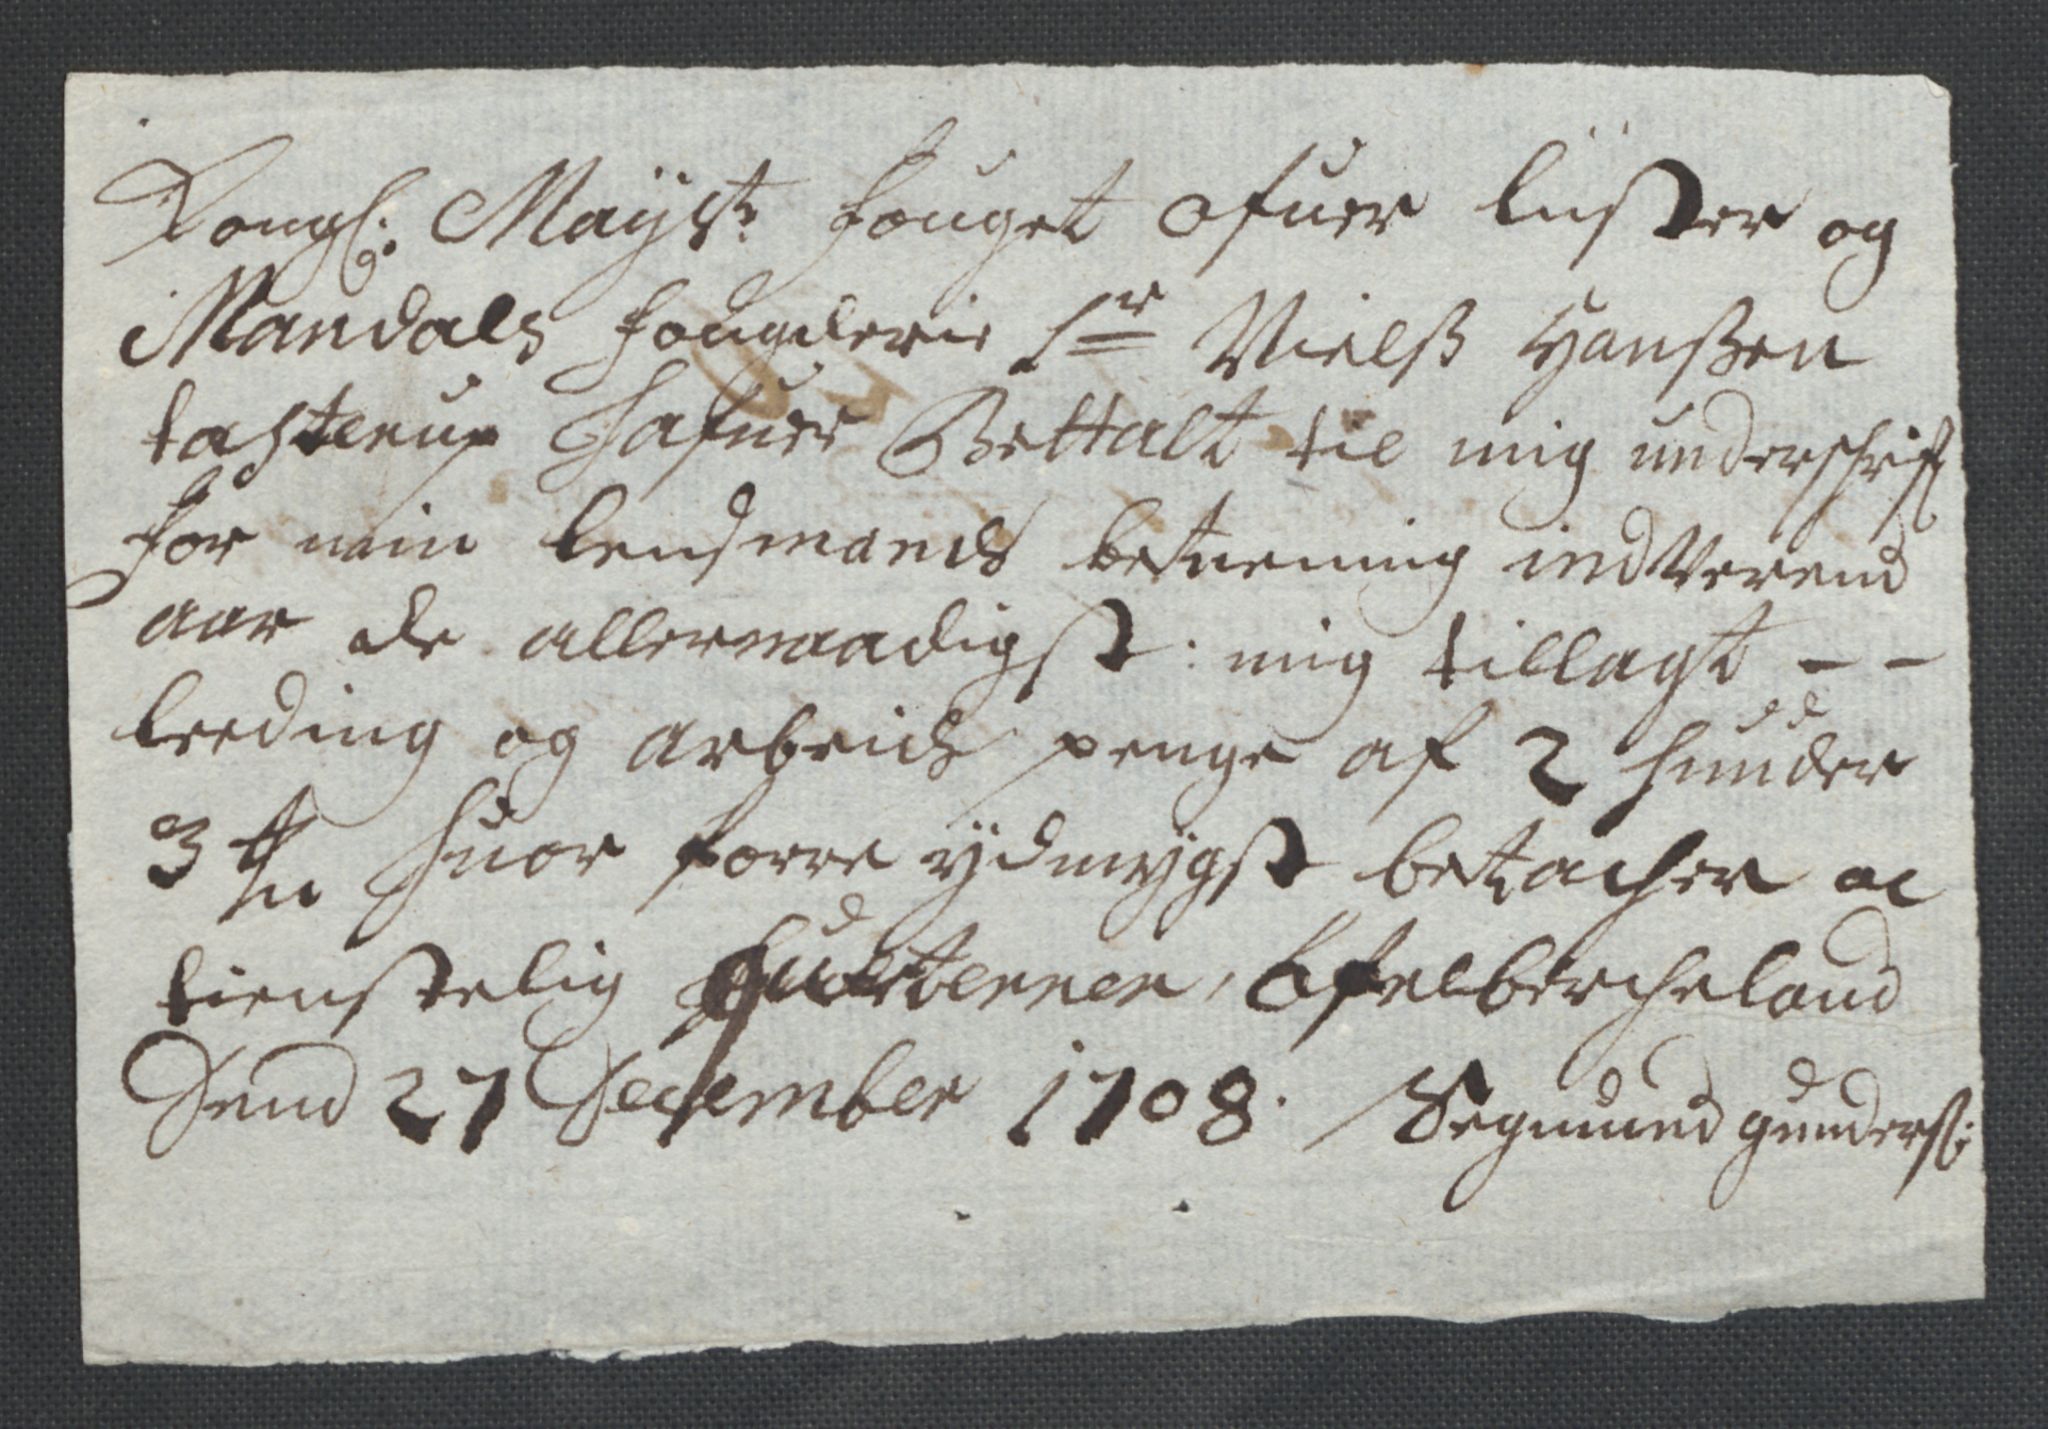 Kongl: Mayst: fouget ofuer lüster og
Mandals fougderie Sr Nielß Hanßen
tasterup hafuer Bettalt til mig underschrif
for min lensmands betiening ind Verend
aar de allernaadigst: mig tillagt - -
leeding og arbeids penge af 2 hunder
3 huor forre ydmygst betacher oc
tienstelig quiterrer, Epelbercheland
Dend 27 December 1708. Segmund gunders: